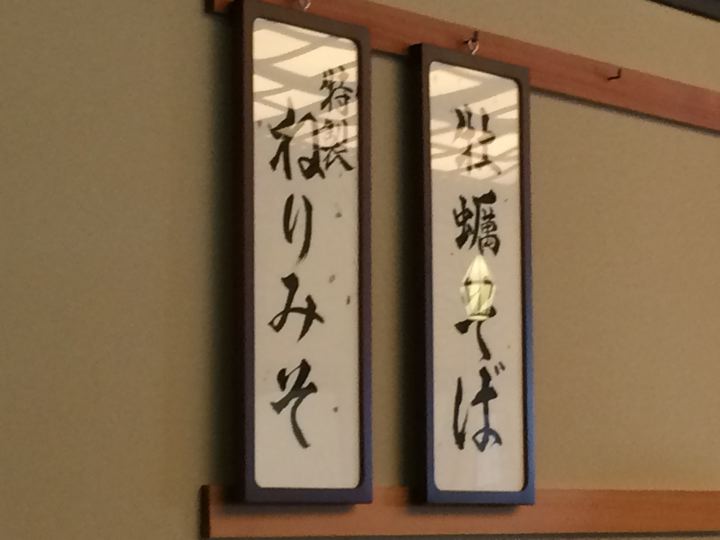 牡蠣そば
特製
ねりみそ